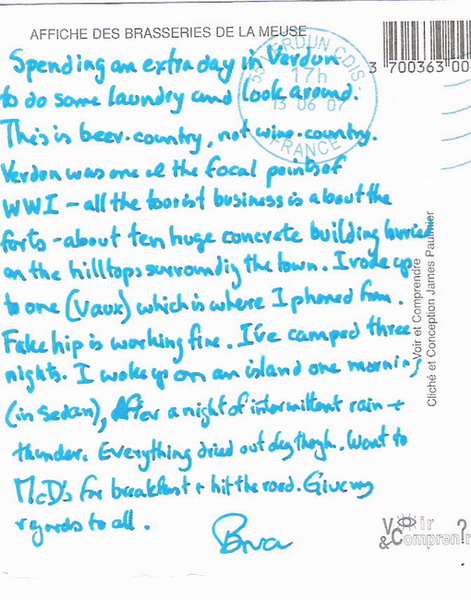 AFFICHE DES BRASSERIES DE LA MEUSE
Spending an extra day in Verdon
to do some laundry and look around.
This is beer-country, not wine-country.
Verdon was one of the focal points of
WWI - all the tourist business is about the
forts - about ten huge concrete building burried
on the hilltops surroundig the town. I rode up
to one (Vaux) which is where I phoned from.
Fake hip is working fine. I've camped three
nights. I woke up on an island one morning
(in Sedan), After a night of intermittent rain +
thunder. Everything dried out day though. Went to
McD's for breakfast + hit the road. Give my
regards to all.
VERDUN CDIS
17h
13 06 07
FRANCE
3 700363 00
Voir et Comprendre
Cliché et Conception James Paulmier
Voir
&Compren?r